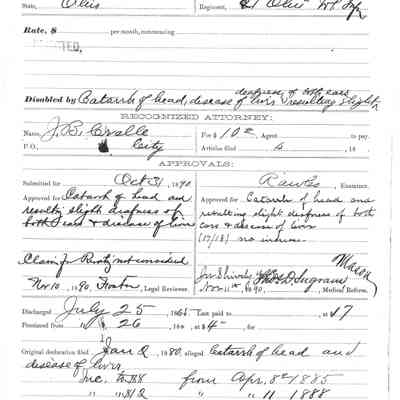 State, Ohio Regiment,
Rate, $ per month, commencing
deafness of both ears
Disabled by Catarrh of head, disease of liver resulting slight
RECOGNIZED ATTORNEY:
Name, J. B. Cralle For $ 10 00 Agent to pay.
P. O., City Articles filed , 18 .
APPROVALS:
Submitted for Oct 31, 1890 Examiner.
Approved for Catarrh of head and Approved for Catarrh of head and
resulting slight deafness of resulting slight deafness of both
both ears & disease of liver ears & disease of liver
(17/18) no increase.
Claim for Rerating not considered
Nov 10, 1890, Legal Reviewer. Nov 11, 1890, Medical Referee.
Discharged July 25, 1865 Last paid to at 17
Pensioned from " 26, 186 , at $ 4
Original declaration filed Jan 2, 1880, alleged Catarrh of head and
disease of liver.
Inc. to from Apr. 8th 1885
" " " 11 1888